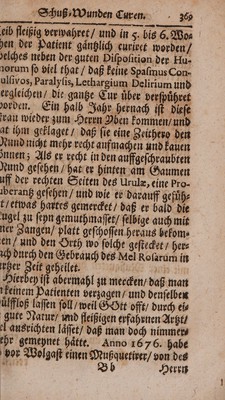 Schuß-Wunden Curen. 369
Leib fleißig verwahret / und in 5. bis 6. Wo-
chen der Patient gäntzlich curiret worden /
welches neben der guten Disposition der Hu-
morum so viel that / daß keine Spasmus Con-
vulsivos, Paralysis, Lethargium Delirium und
dergleichen / die gantze Cur über verspühret
worden. Ein halb Jahr hernach ist diese
Frau wieder zum Herrn Uben kommen / und
hat ihm geklaget / daß sie eine Zeithero den
Mund nicht mehr recht aufmachen und kauen
können; Als er recht in den auffgeschraubten
Mund gesehen / hat er hinten am Gaumen
auff der rechten Seiten des Urulæ, eine Pro-
tuberanz gesehen / und wie er darauff gefüh-
let / etwas hartes gemercket / daß er bald die
Kugel zu seyn gemuthmasset / selbige auch mit
einer Zangen / platt geschossen heraus bekom-
men / und den Orth wo solche gestecket / her-
nach durch den Gebrauch des Mel Rosarum in
kurtzer Zeit geheilet.
Hierbey ist abermahl zu mercken / daß man
an keinem Patienten verzagen / und denselben
hülffloß lassen soll / weil GOtt offt / durch ei-
ne gute Natur / und fleißigen erfahrnen Artzt /
viel ausrichten lässet / daß man doch nimmer-
mehr gemeynet hätte. Anno 1676. habe
vor Wolgast einen Mußquetirer / von des
B b Herrn